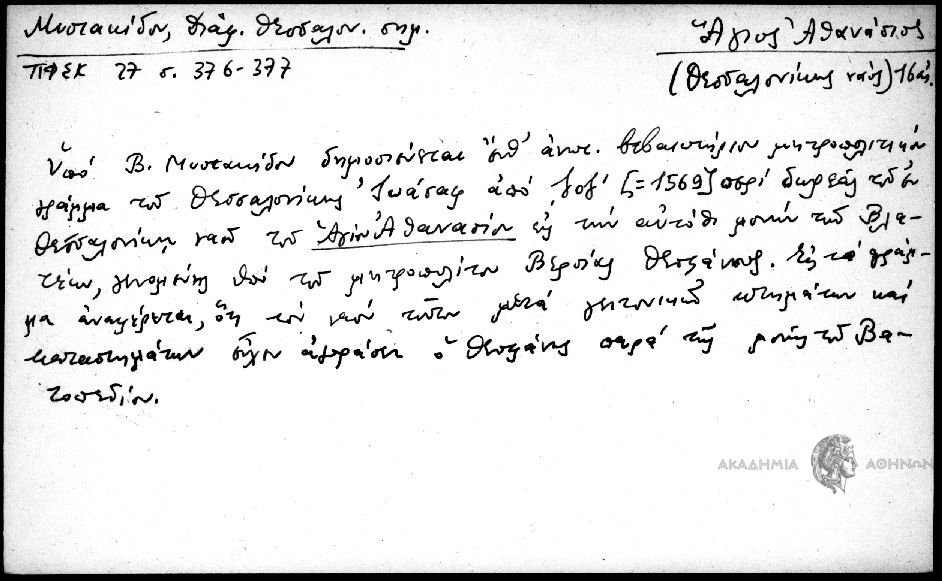 Μυστακίδου, Διάφ. Θεσσαλον. σημ.
Ἅγιος Ἀθανάσιος
ΠΦΣΚ 27 σ. 376-377
(Θεσσαλονίκης ναός) 16 αἰ.
Ὑπό Β. Μυστακίδου δημοσιεύεται ἀνωτ. βεβαιωτήριον μητροπολιτικόν
γράμμα τοῦ Θεσσαλονίκης Ἰωάσαφ ἀπό ζοζ' [=1569] περί δωρεᾶς τοῦ ἐν
Θεσσαλονίκῃ ναοῦ τοῦ Ἁγίου Ἀθανασίου εἰς τήν αὐτόθι μονήν τῶν Βλα-
τέων, γενομένης ὑπό τοῦ μητροπολίτου Βεροίας Θεοφάνους. Εἰς τό γράμ-
μα ἀναφέρεται, ὅτι τόν ναόν τοῦτον μετά γειτονικῶν κτημάτων καί
καταστημάτων εἶχεν ἀγοράσει ὁ Θεοφάνης παρά τῆς μονῆς τοῦ Βα-
τοπεδίου.
ΑΚΑΔΗΜΙΑ ΑΘΗΝΩΝ